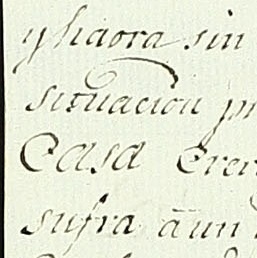 y haora sin
situacion pr
Casa Cre
sufra aun